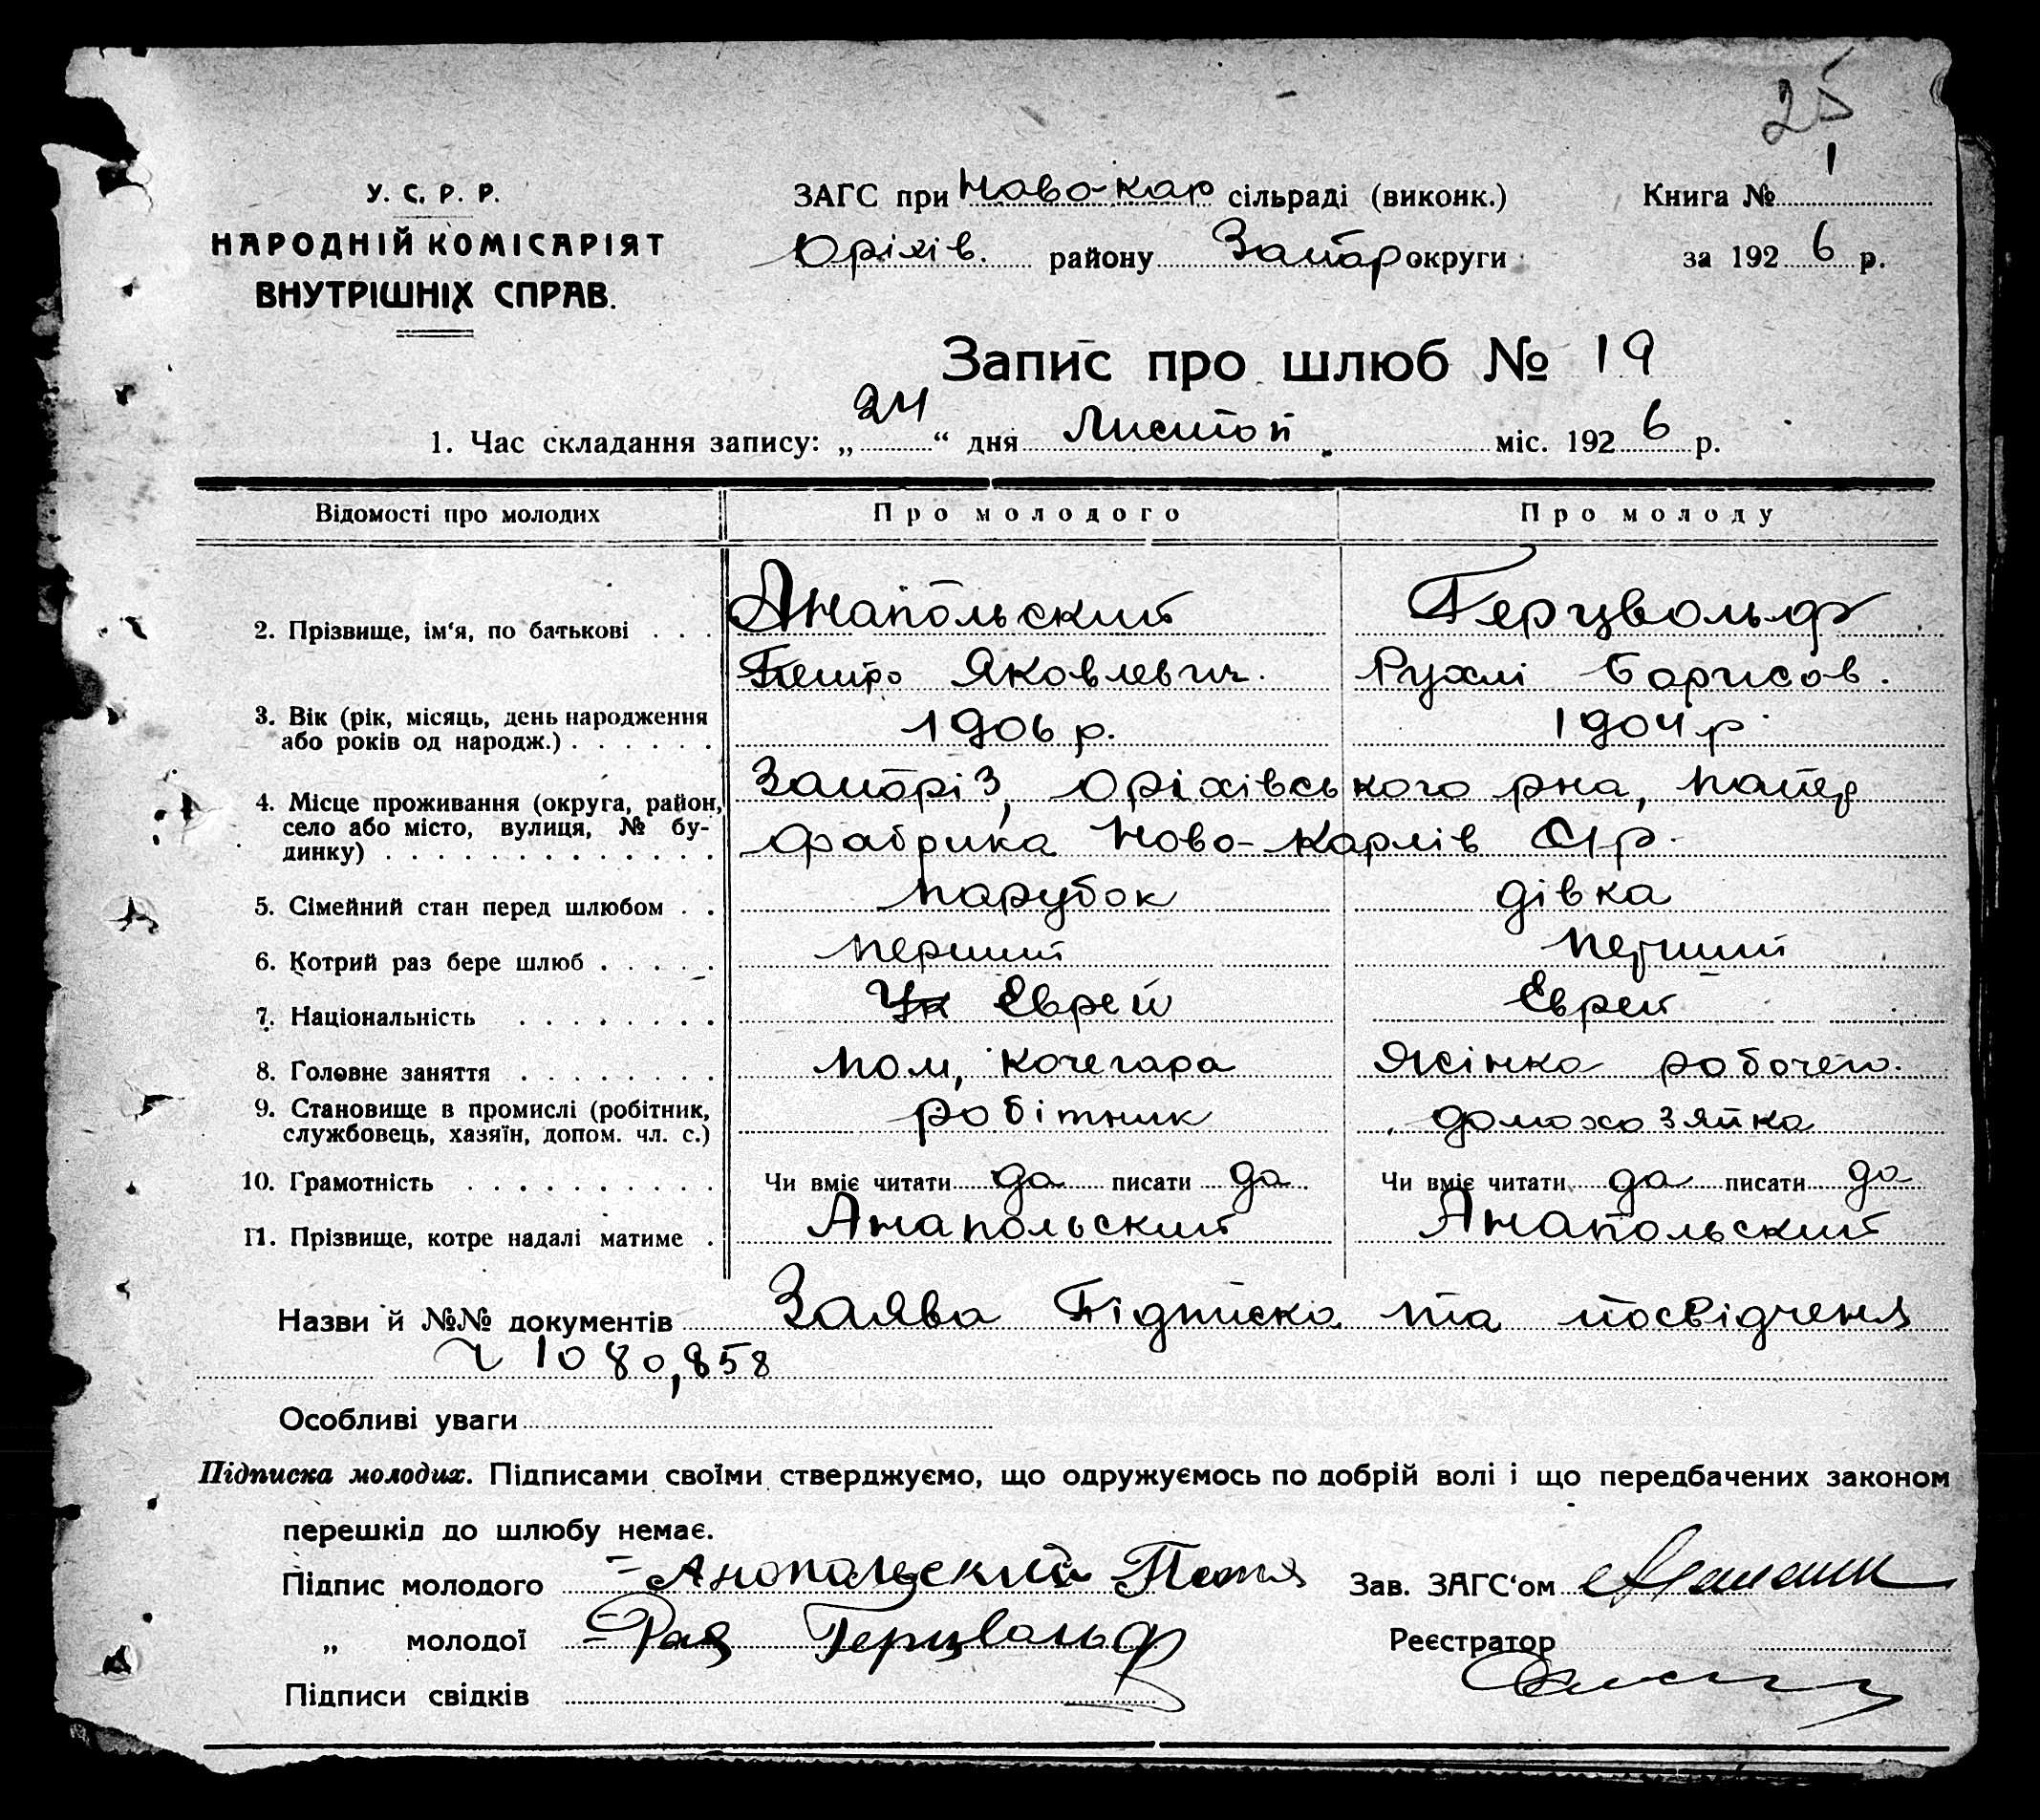 25
У. С. Р. Р.
НАРОДНІЙ КОМІСАРІЯТ
ВНУТРІШНІХ СПРАВ.
ЗАГС при Ново-Кар сільраді (виконк.)
Оріхів. району Запор округи
Книга № 1
за 1926 р.
Запис про шлюб № 19
1. Час складання запису: „24“ дня Листоп. міс. 1926 р.
Відомості про молодих Про молодого Про молоду
2. Прізвище, ім'я, по батькові . . . Анапольский Герцвольф
Петро Яковлевич. Рухлі Борисов.
3. Вік (рік, місяць, день народження
або років од народж.) . . . . . . 1906 р. 1904 р
4. Місце проживання (округа, район, Запоріз, Оріхівського рна, папер
село або місто, вулиця, № бу-
динку) . . . . . . . . . . . . . фабрика Ново-Карлів С/р.
5. Сімейний стан перед шлюбом . . парубок дівка
6. Котрий раз бере шлюб . . . . . перший перший
7. Національність . . . . . . . . Ук Еврей Еврей
8. Головне заняття . . . . . . . . пом, кочегара Жінка робочего.
9. Становище в промислі (робітник,
службовець, хазяїн, допом. чл. с.) робітник домохозяйка
10. Грамотність . . . . . . . . . . Чи вміє читати да писати да Чи вміє читати да писати да
11. Прізвище, котре надалі матиме . Анапольский Анапольский
Назви й №№ документів Заява Підписка та посвідченя
1080,858
Особливі уваги
Підписка молодих. Підписами своїми стверджуємо, що одружуємось по добрій волі і що передбачених законом
перешкід до шлюбу немає.
Підпис молодого Анопольский Петя Зав. ЗАГС'ом
„ молодої Рая Герцвольф Реєстратор
Підписи свідків